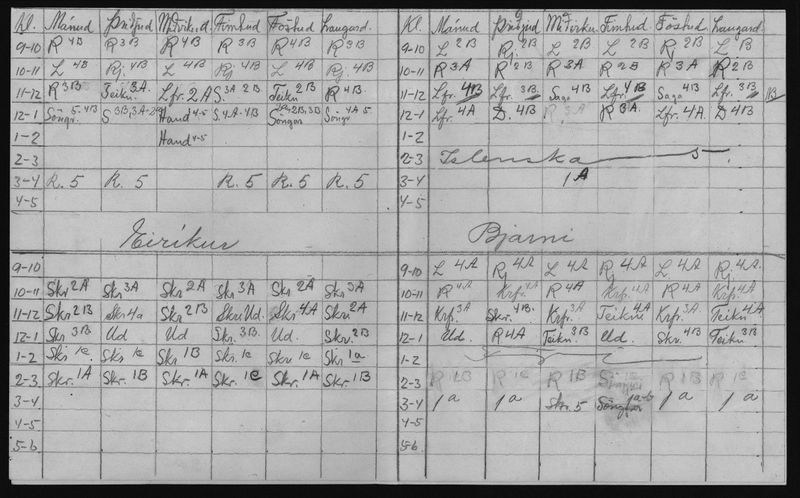 Kl. Mánud Þriðjud Miðvikud. Fimtud Föstud Laugard.
9-10 R 4B R 3B R 4B R 3B R 4B R 3B
10-11 L 4B Rj. 4B L 4B Rj 4B L 4B Rj. 4B
11-12 R 3B Teikn 3A. Lfr. 2A S. 3A 2B Teikn 2B R 4B.
12-1 Söngr. 5.4B S 3B, 3A Hand 4-5 S. 4A. 4B Söngur Söngr 4A 5
1-2 Hand 4-5
2-3
3-4 R. 5 R. 5 R. 5 R. 5 R. 5
4-5
Eiríkur
9-10
10-11 Skr 2A Skr 3A Skr 2A Skr 3A Skr 2A Skr 3A
11-12 Skr 2B Skr 4a Skr 2B Skr. Ud. Skr. 4A Skr 2A
12-1 Skr 3B Ud Ud Skr. 3B. Ud. Skr. 2B
1-2 Skr 1c Skr 1c Skr 1B Skr. 1c Skr 1c Skr 1a
2-3 Skr. 1A Skr. 1B Skr. 1A Skr. 1C Skr. 1A Skr. 1B
3-4
4-5
5-6
Kl. Mánud Þriðjud Miðviku. Fimtud Föstud. Laugard.
9-10 L 2B Rj. 2B L 2B L 2B R 2B L 2B
10-11 R 3A R 2B R 3A R 2B R 3A R 2B
11-12 Lfr. 4B Lfr. 3B Saga 4B Lfr. 4B Saga 4B Lfr. 3B
12-1 Lfr. 4A D. 4B R 3A R 3A. Lfr. 4A. D 4B
1-2
2-3 Islenska 5
3-4 1A
4-5
Bjarni
9-10 L 4A Rj 4A L 4A Rj 4A L 4A Rj. 4A.
10-11 R 4A Krf. 4A R 4A Krf. 4A R 4A Krf. 4A
11-12 Krf. 3A Skr. 4B Krf. 3A Teikn 4A Krf. 3A Teikn 4A
12-1 Ud. R 4A Teikn. 3B Ud. Skr. 4B Teikn 3B
1-2
2-3 R 1B R 1C R 1B R 1B R 1C
3-4 1a 1a Skr. 5 Söngur a-b 1a 1a
4-5
5-6